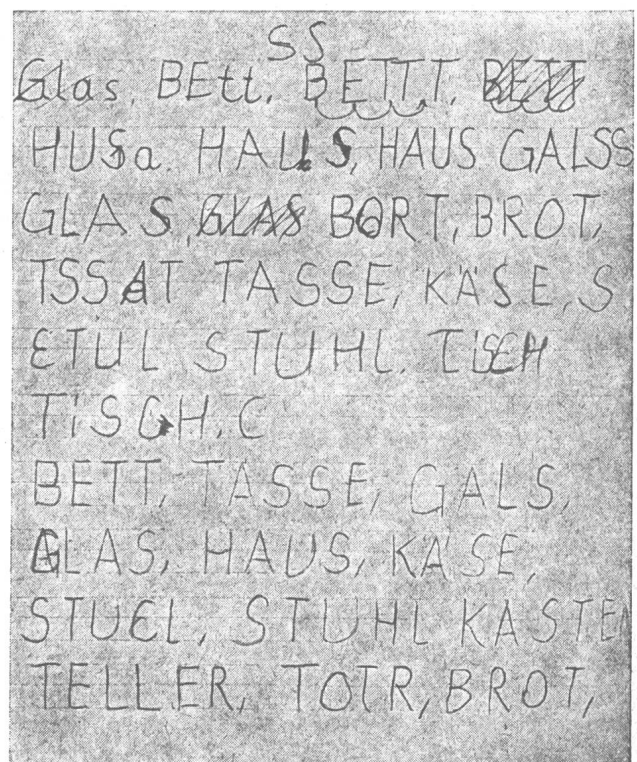 SS
Glas, BEtt, BETTT, BETT
HUSa. HAUS, HAUS GALSS
GLAS, GLAS BORT, BROT,
TSSAT TASSE, KÄSE, S
ETUL STUHL. TISCH
TISCH. C
BETT, TASSE, GALS,
GLAS, HAUS, KÄSE,
STUEL, STUHL KASTEN
TELLER, TOTR, BROT,